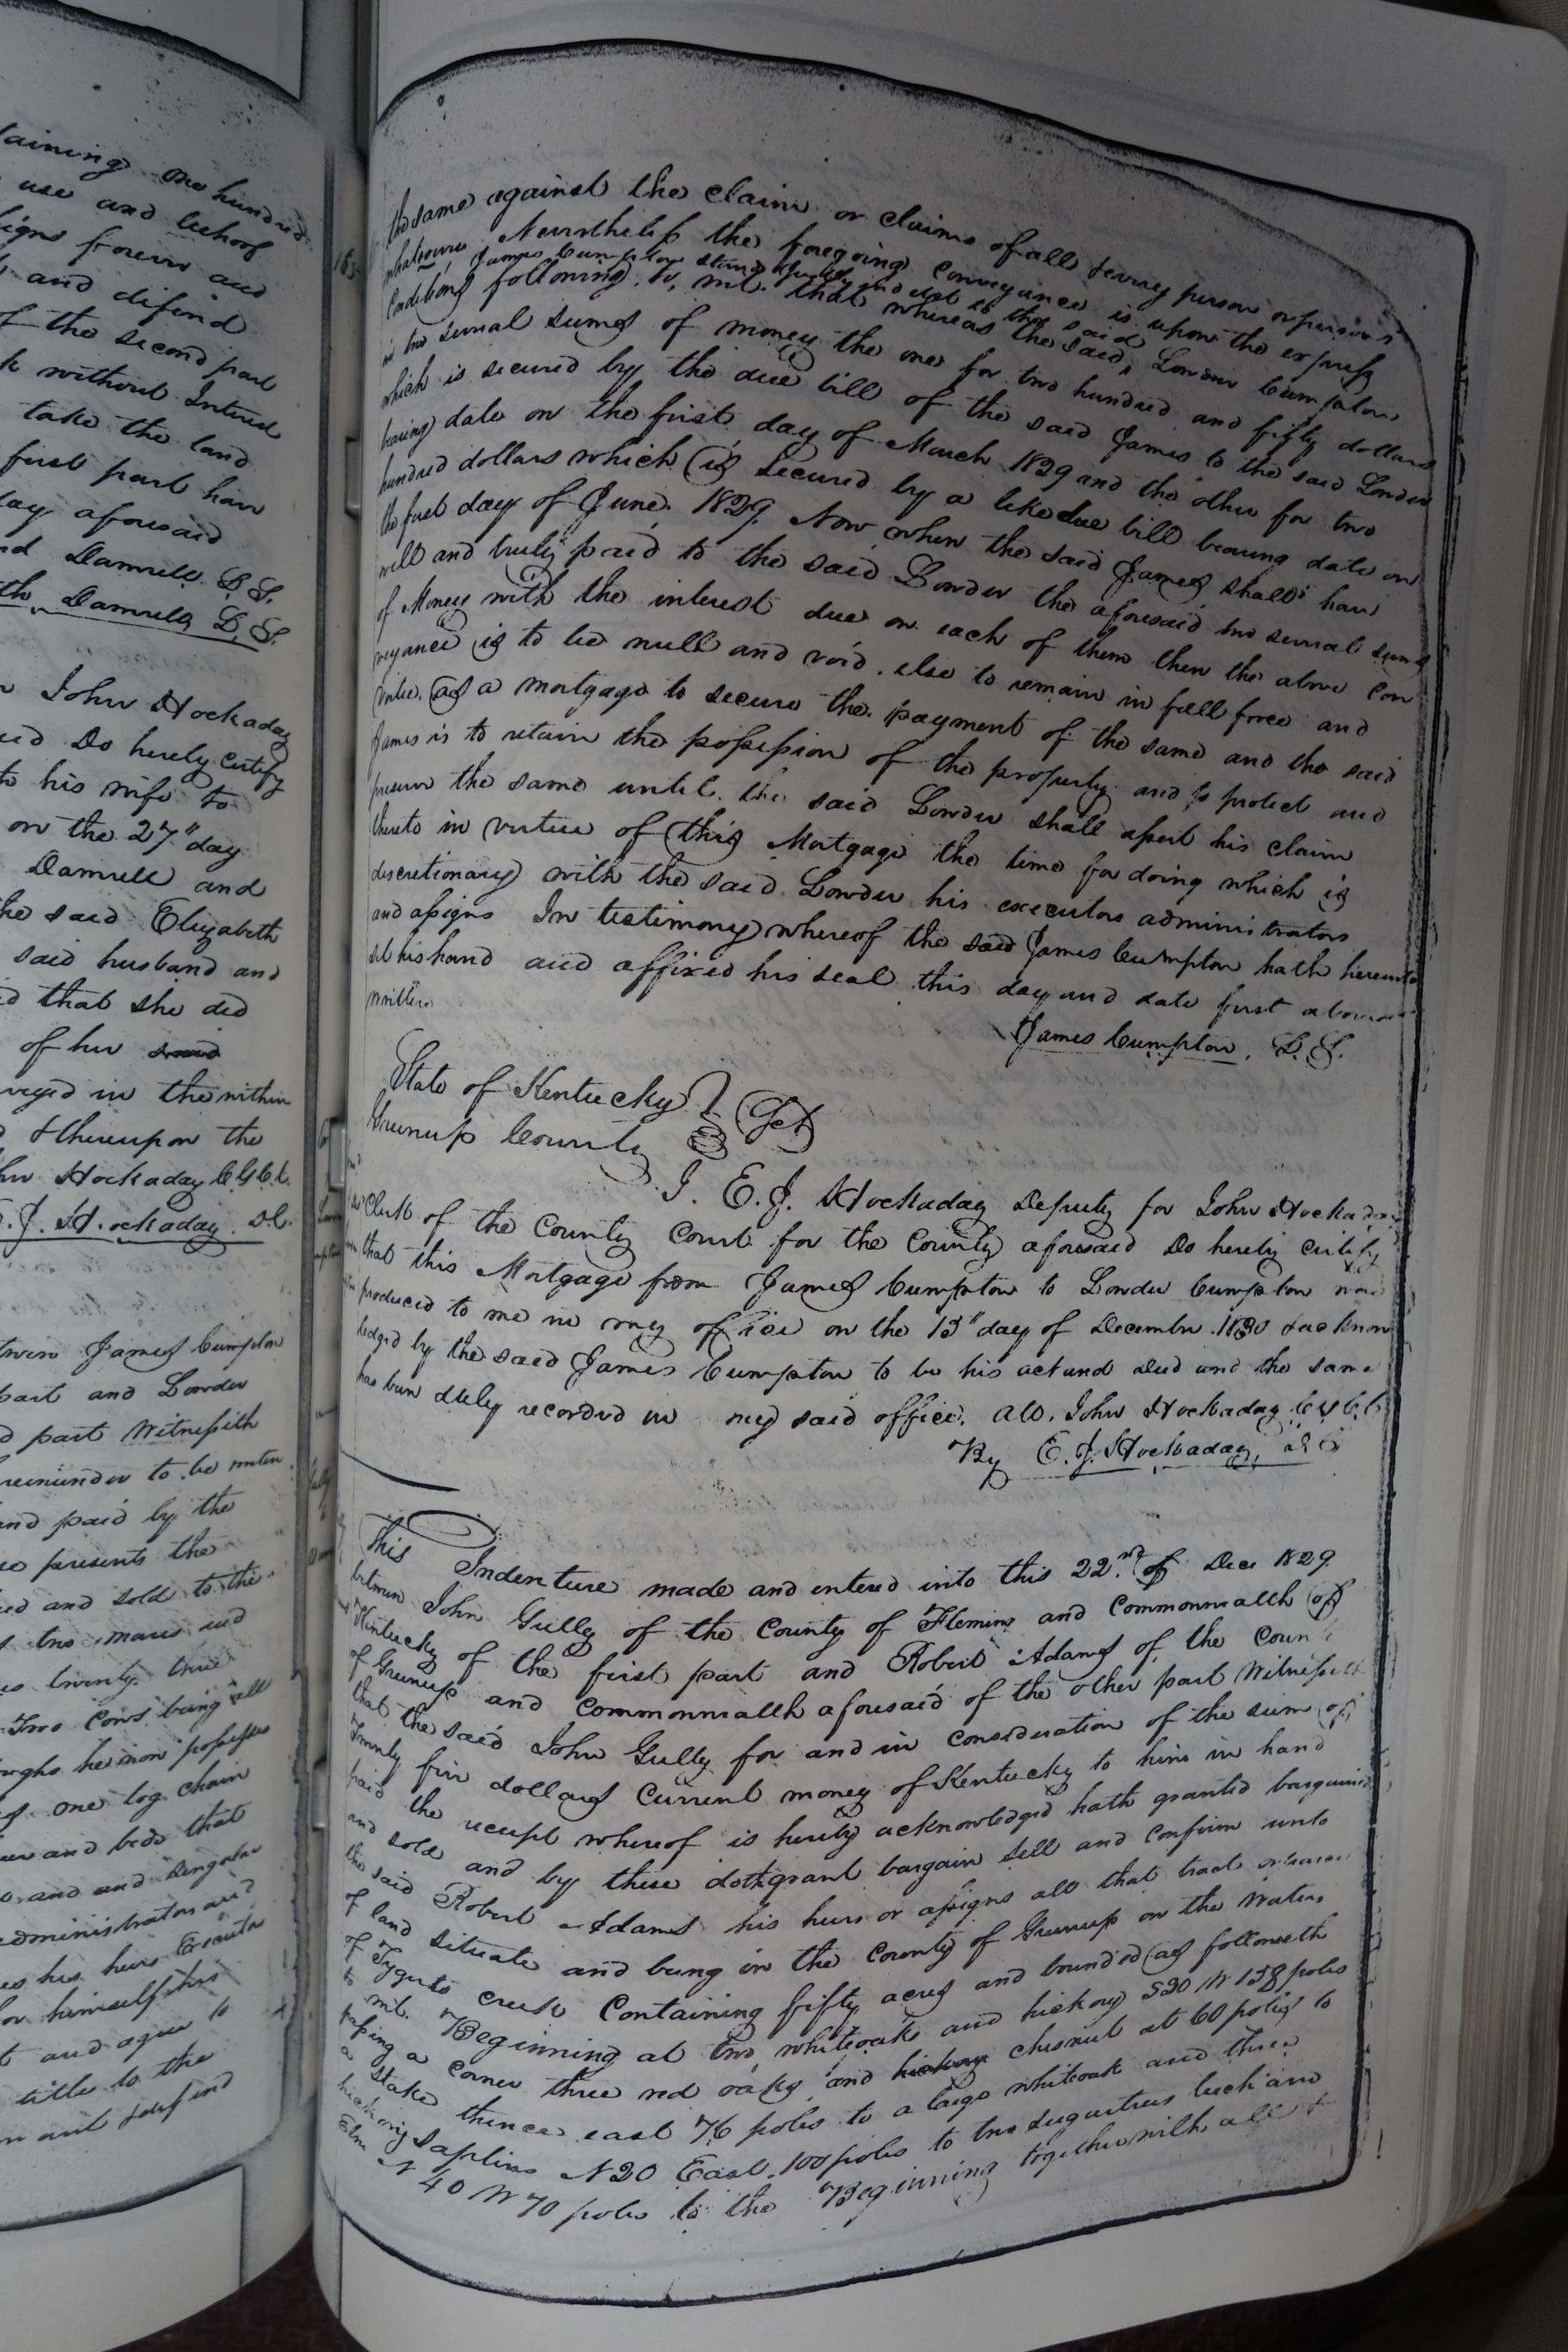 laining One hundred
use and behoof
signs forever and
and difind
of the second part
without Intrest
take the land
first part have
day aforesaid
Damrell L.S.
Damrell L.S.
John Hockaday
Do hereby certify
to his wife to
on the 27" day
Damrell and
the said Elizabeth
said husband and
that she did
of her
veyed in the within
& thereupon the
Hockaday C.G.C.C.
E.J. Hockaday D.C.
James Cumpton
part and Lowder
part Witnesseth
reuninder to be
and paid by the
presents the
and sold to the
two mares
twenty three
Two Cows being all
he now possesses
one log chain
and beds that
and and singular
administrators and
his heirs Executor
for himself his
and agree to
title to the
and defend
the same against the claim or claims of all & every person or persons
whatsoever Nevertheless the foregoing conveyance is upon the express
Conditions following, to, wit. that whereas the said
James Cumpton stands justly indebt to the said Lowder Cumpton
in two several sumes of money the one for two hundred and fifty dollars
which is secured by the due bill of the said James to the said Lowder
bearing date on the first day of March 1829 and the other for two
hundred dollars which is secured by a like due bill bearing date on
the first day of June 1829. Now when the said James shall have
well and truly paid to the said Lowder the aforesaid two several sums
of Money with the interest due on each of them then the above Con
veyance is to be null and void. else to remain in full force and
virtue. as a mortgage to secure the payment of the same and the said
James is to retain the possession of the property and to protect and
preserve the same until the said Lowder shall assert his claim
thereto in virtue of this Mortgage the time for doing which is
discretionary with the said Lowder his executors administrators
and assigns In testimony whereof the said James Cumpton hath hereunto
set his hand and affixed his seal this day and date first above
written
James Cumpton. L.S.
State of Kentucky
Greenup County Sct
I. E. J. Hockaday Deputy for John Hockaday
Clerk of the County Court for the County aforesaid Do hereby certify
that this Mortgage from James Cumpton to Lowder Cumpton was
produced to me in my office on the 13" day of December 1830 & acknow
ledged by the said James Cumpton to be his act and deed and the same
has been duly recorded in my said office. Att. John Hockaday C.G.C.C.
By E. J. Hockaday, D C
This Indenture made and entered into this 22nd of Dec 1829.
between John Gully of the County of Fleming and Commonwealth of
Kentucky of the first part and Robert Adams of the County
of Greenup and Commonwealth aforesaid of the other part Witnesseth
that the said John Gully for and in consideration of the sum of
Twenty five dollars Current money of Kentucky to him in hand
paid the receipt whereof is hereby acknowledged hath granted bargained
and sold and by these doth grant bargain sell and confirm unto
the said Robert Adams his heirs or assigns all that tract or parcel
of land situate and being in the County of Greenup on the Waters
of Tygerts creek Containing fifty acres and bounded as followeth
to wit. Beginning at two whiteoaks and hickory S20 W 158 poles
passing a corner three red oaks and hickory chesnut at 60 poles to
a stake thence east 76 poles to a large whiteoak and three
hickory saplins N20 East 100 poles to two sugartrees buch and
Elm N 40 W 70 poles to the Beginning together with all &